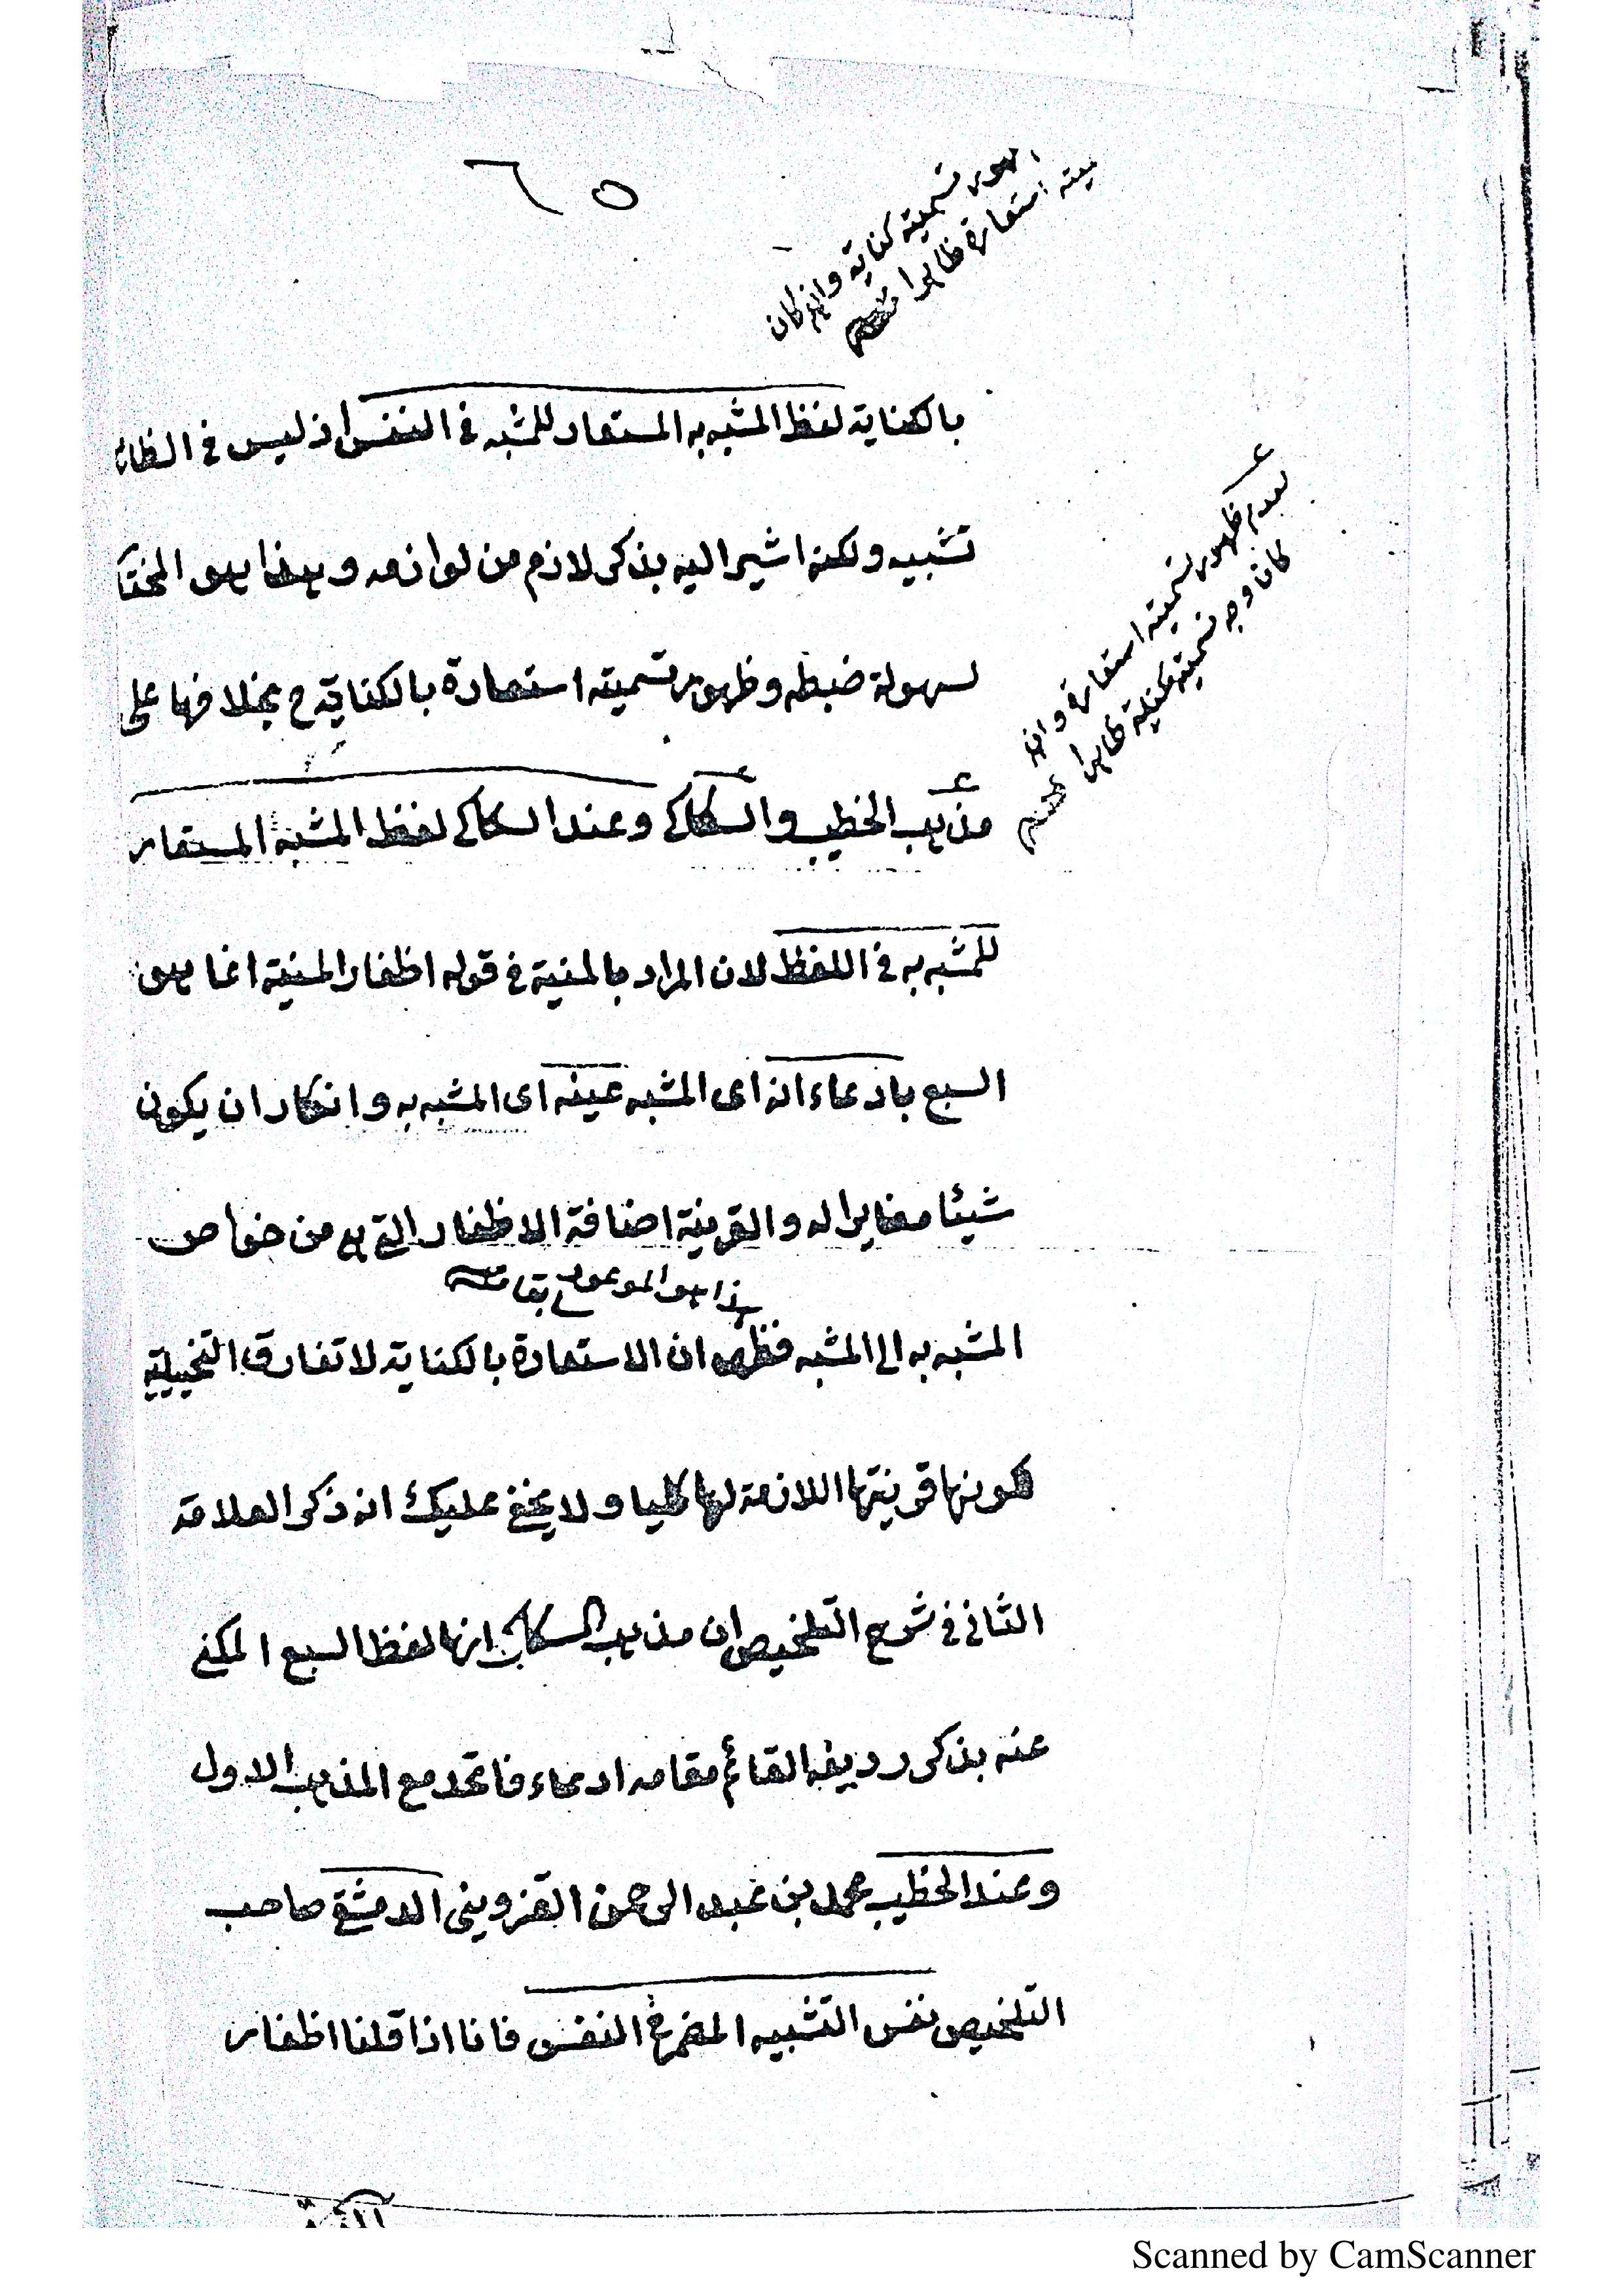 ٦٥
ظهور تسميته كناية وان كان
تسميته استعارة ظاهرا منه
بالكناية لفظ المشبه به المستعار للمشبه في النفس اذ ليس في الظاهر
تشبيه ولكنه اشير اليه بذكر لازم من لوازمه وهذا هو المختار
لسهولة ضبطه وظهور تسميته استعارة بالكناية ح بخلافها على
لعدم ظهور تسميته استعارة وان
كان وجه تسميته مكنية ظاهرا منه
مذهب الخطيب والسكاكي وعند السكاكي لفظ المشبه المستعار
للمشبه به في اللفظ لان المراد بالمنية في قوله اظفار المنية انما هو
السبع بادعاء انه اى المشبه عينه اى المشبه به وانكار ان يكون
شيئا مغايرا له والقرينة اضافة الاظفار التي هي من خواص
هذا هو الموعود
المشبه به الى المشبه فظهر ان الاستعارة بالكناية لا تفارق التخييلية
لكونها قرينتها اللازمة لها كليا ولا يخفى عليك انه ذكر العلامة
الثاني في شرح التلخيص ان مذهب السكاكي انها لفظ السبع المكنى
عنه بذكر رديفه القائم مقامه ادعاء فاتحد مع المذهب الاول
وعند الخطيب محمد بن عبد الرحمن القزويني الدمشقي صاحب
التلخيص نفس التشبيه المضمر في النفس فانا اذا قلنا اظفار
Scanned by CamScanner